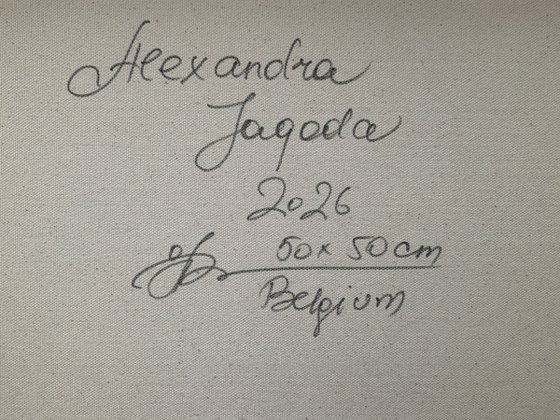 Alexandra
Jagoda
2026
50x50cm
Belgium